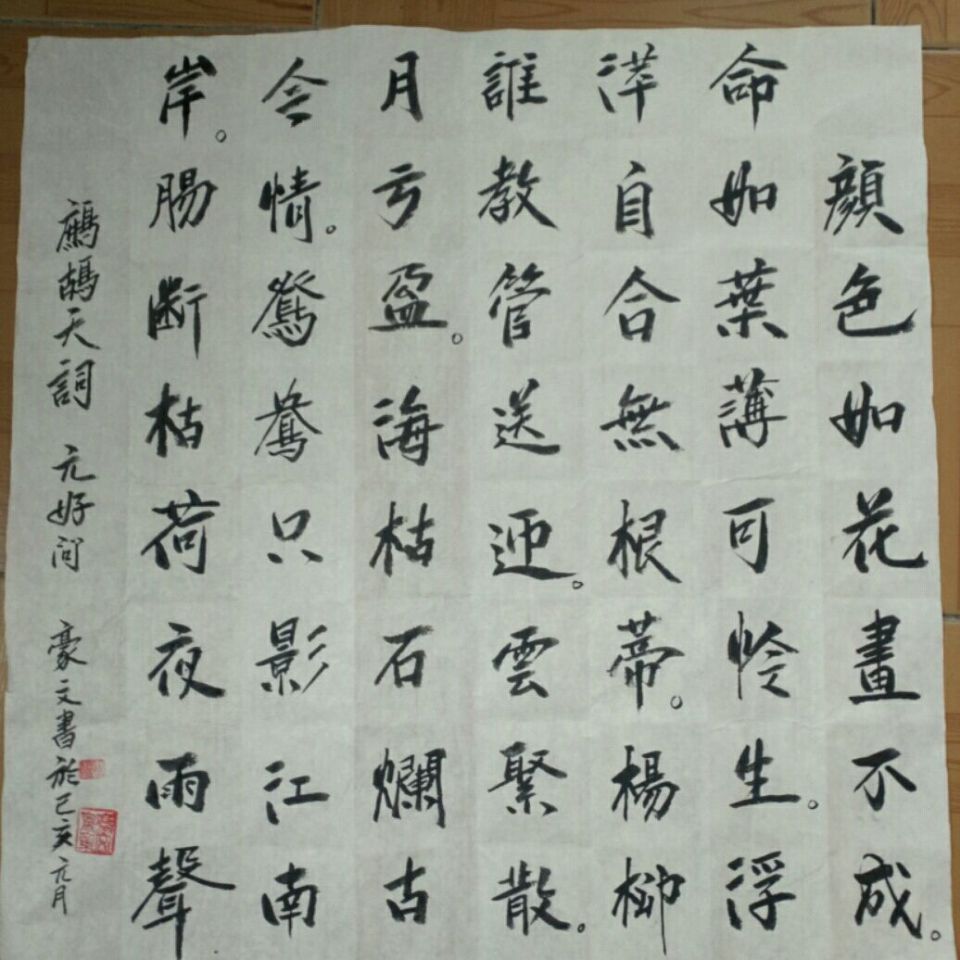 顔色如花畫不成。
命如葉薄可憐生。浮
萍自合無根蒂。楊柳
誰教管送迎。雲聚散。
月亏盈。海枯石爛古
今情。鴛鴦只影江南
岸。腸斷枯荷夜雨聲
鷓鴣天詞 元好问 豪文書於己亥元月